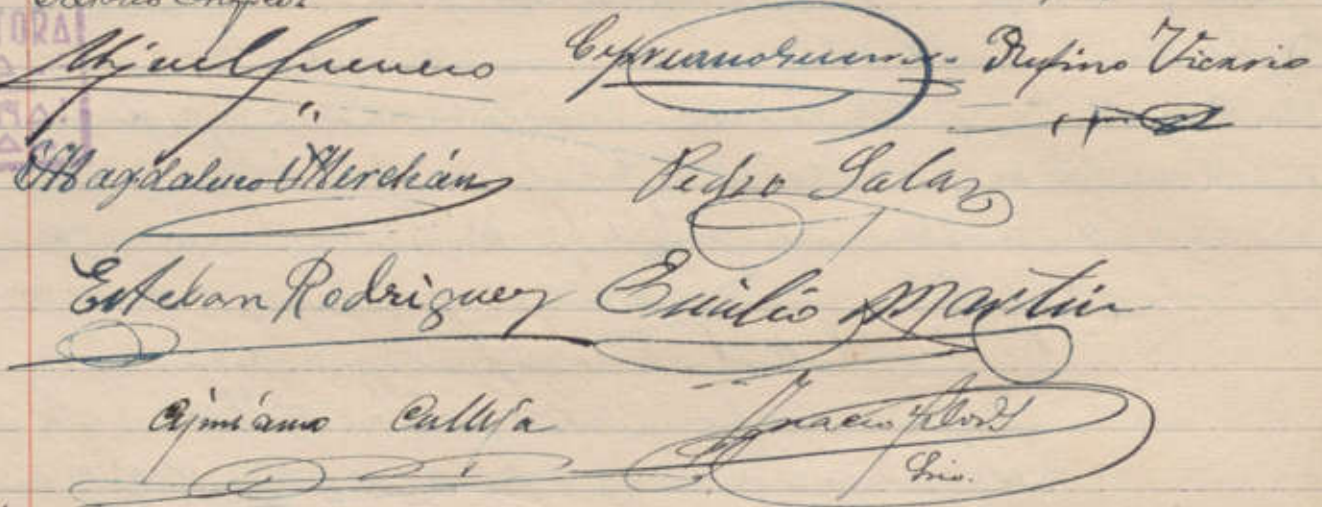 Miguel Guerrero Cipriano Guerrero Rufino Vicario
Magdaleno Merchán Pedro Salas
Esteban Rodriguez Emilio Martin
Calleja Ignacio
Srio.